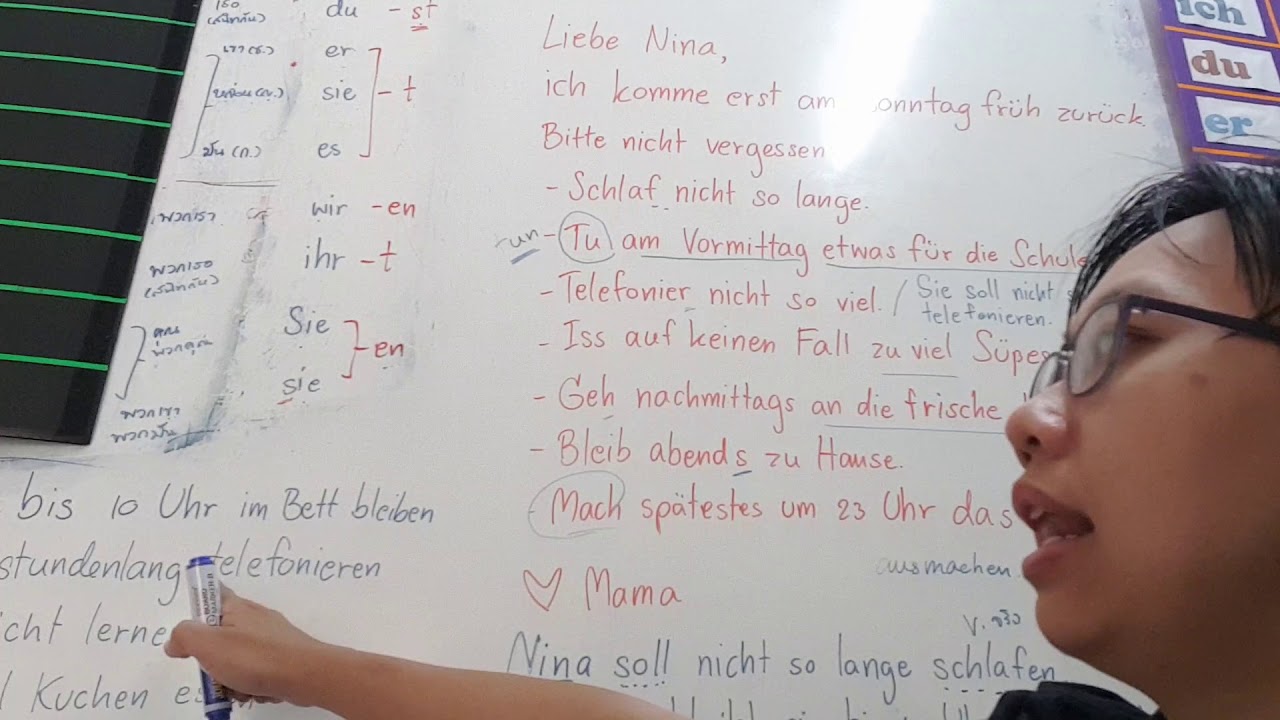 เธอ du - st
(สนิทกัน)
เขา(ช.) er
sie - t
มัน (ก.) es
พวกเรา wir - en
พวกเธอ ihr - t
(สนิทกัน)
คุณ Sie
พวกคุณ - en
พวกเขา sie
พวกมัน
bis 10 Uhr im Bett bleiben
stundenlang telefonieren
icht lerne
Kuchen es
Liebe Nina,
ich komme erst am onntag früh zurück.
Bitte nicht vergessen
- Schlaf nicht so lange.
- Tu am Vormittag etwas für die Schule
tun
- Telefonier nicht so viel. / Sie soll nicht
telefonieren.
- Iss auf keinen Fall zu viel Süpe
- Geh nachmittags an die frische
- Bleib abends zu Hause.
- Mach spätestes um 23 Uhr das
ausmachen
♡ Mama
V. จริง
Nina soll nicht so lange schlafen
ich
du
er